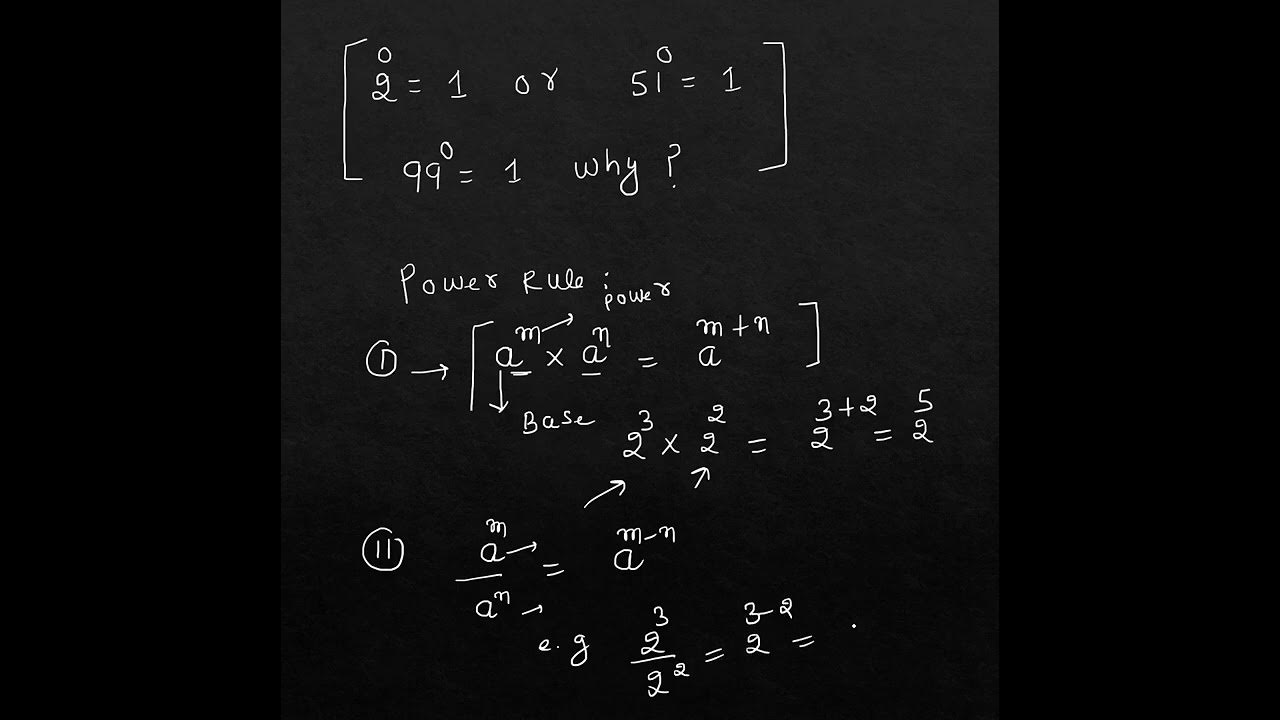 2⁰ = 1 or 51⁰ = 1
99⁰ = 1 why ?
Power Rule :
power
I → [ aᵐ × aⁿ = aᵐ⁺ⁿ ]
Base
2³ × 2² = 2³⁺² = 2⁵
II aᵐ/aⁿ = aᵐ⁻ⁿ
e.g 2³/2² = 2³⁻² =